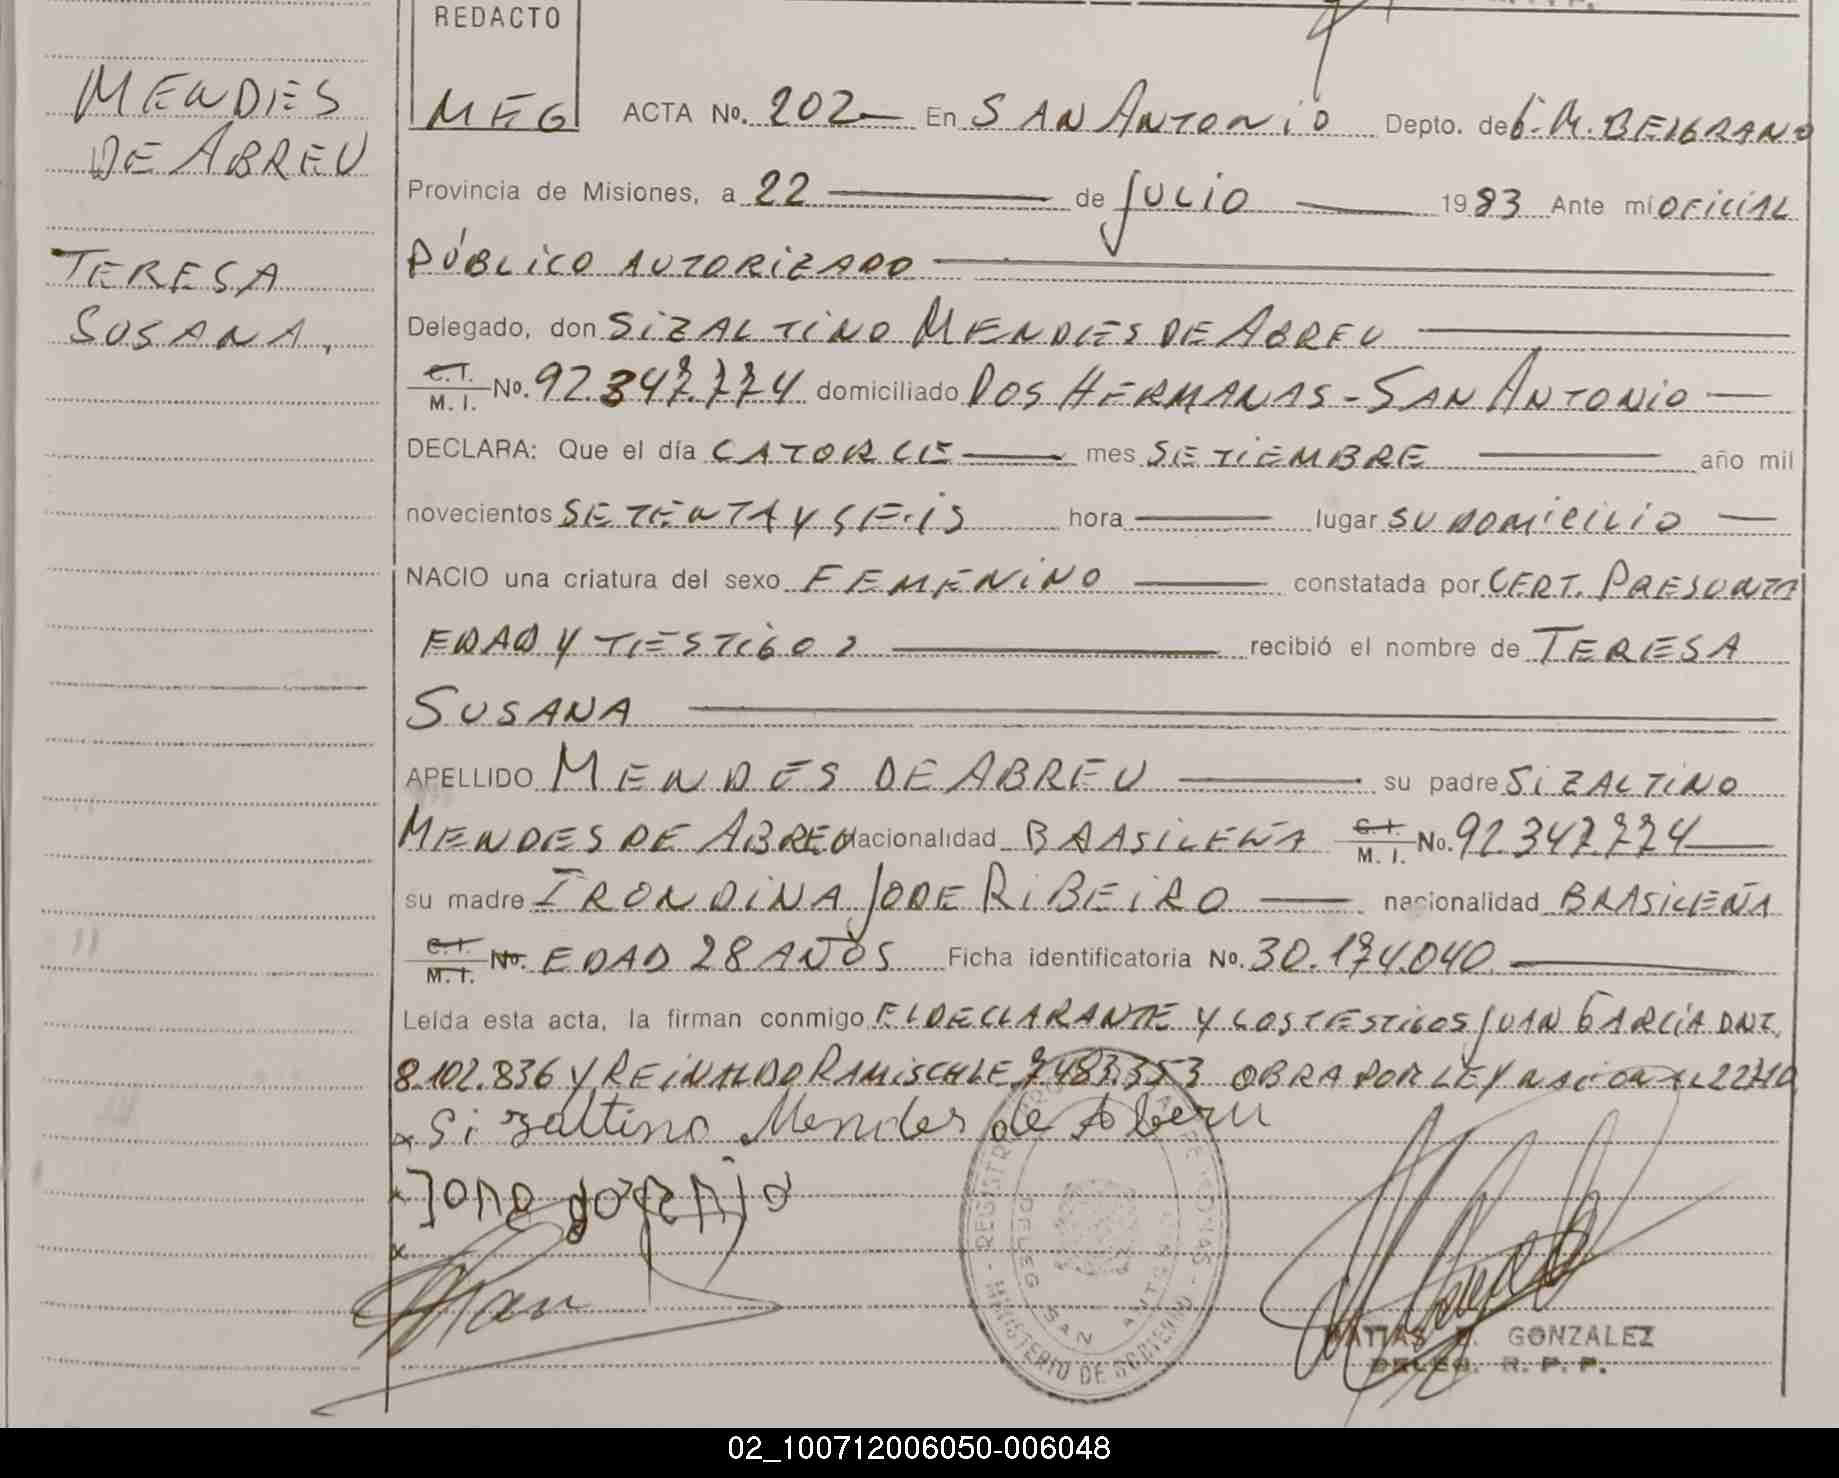 MENDES
DE ABREU
TERESA
SUSANA,
REDACTO
MEG
ACTA No. 202 En SAN ANTONIO Depto. de G. M. BELGRANO
Provincia de Misiones, a 22 de JULIO 1983 Ante mí OFICIAL
PÚBLICO AUTORIZADO
Delegado, don SIZALTINO MENDES DE ABREU
C. I. M. I. No. 92.347.774 domiciliado DOS HERMANAS - SAN ANTONIO
DECLARA: Que el día CATORCE mes SETIEMBRE año mil
novecientos SETENTA Y SEIS hora lugar SU DOMICILIO
NACIO una criatura del sexo FEMENINO constatada por CERT. PRESUNTA
EDAD Y TESTIGOS recibió el nombre de TERESA
SUSANA
APELLIDO MENDES DE ABREU su padre SIZALTINO
MENDES DE ABREU nacionalidad BRASILEÑA C. I. M. I. No. 92.347.774
su madre IRONDINA JODE RIBEIRO nacionalidad BRASILEÑA
C. I. M. I. No. EDAD 28 AÑOS Ficha identificatoria No. 30.174.040
Leída esta acta, la firman conmigo EL DECLARANTE Y LOS TESTIGOS JUAN GARCÍA DNI.
8.102.836 Y REINALDO RAMISCHLE 7.483.353 OBRA POR LEY NACIONAL 22410
x Sizaltino Mendes de Aberu
x
x
REGISTRO PROVINCIAL DE PERSONAS - MINISTERIO DE GOBIERNO -
DELEG. SAN ANTONIO
MATIAS GONZALEZ
DELEG. R. P. P.
02_100712006050-006048